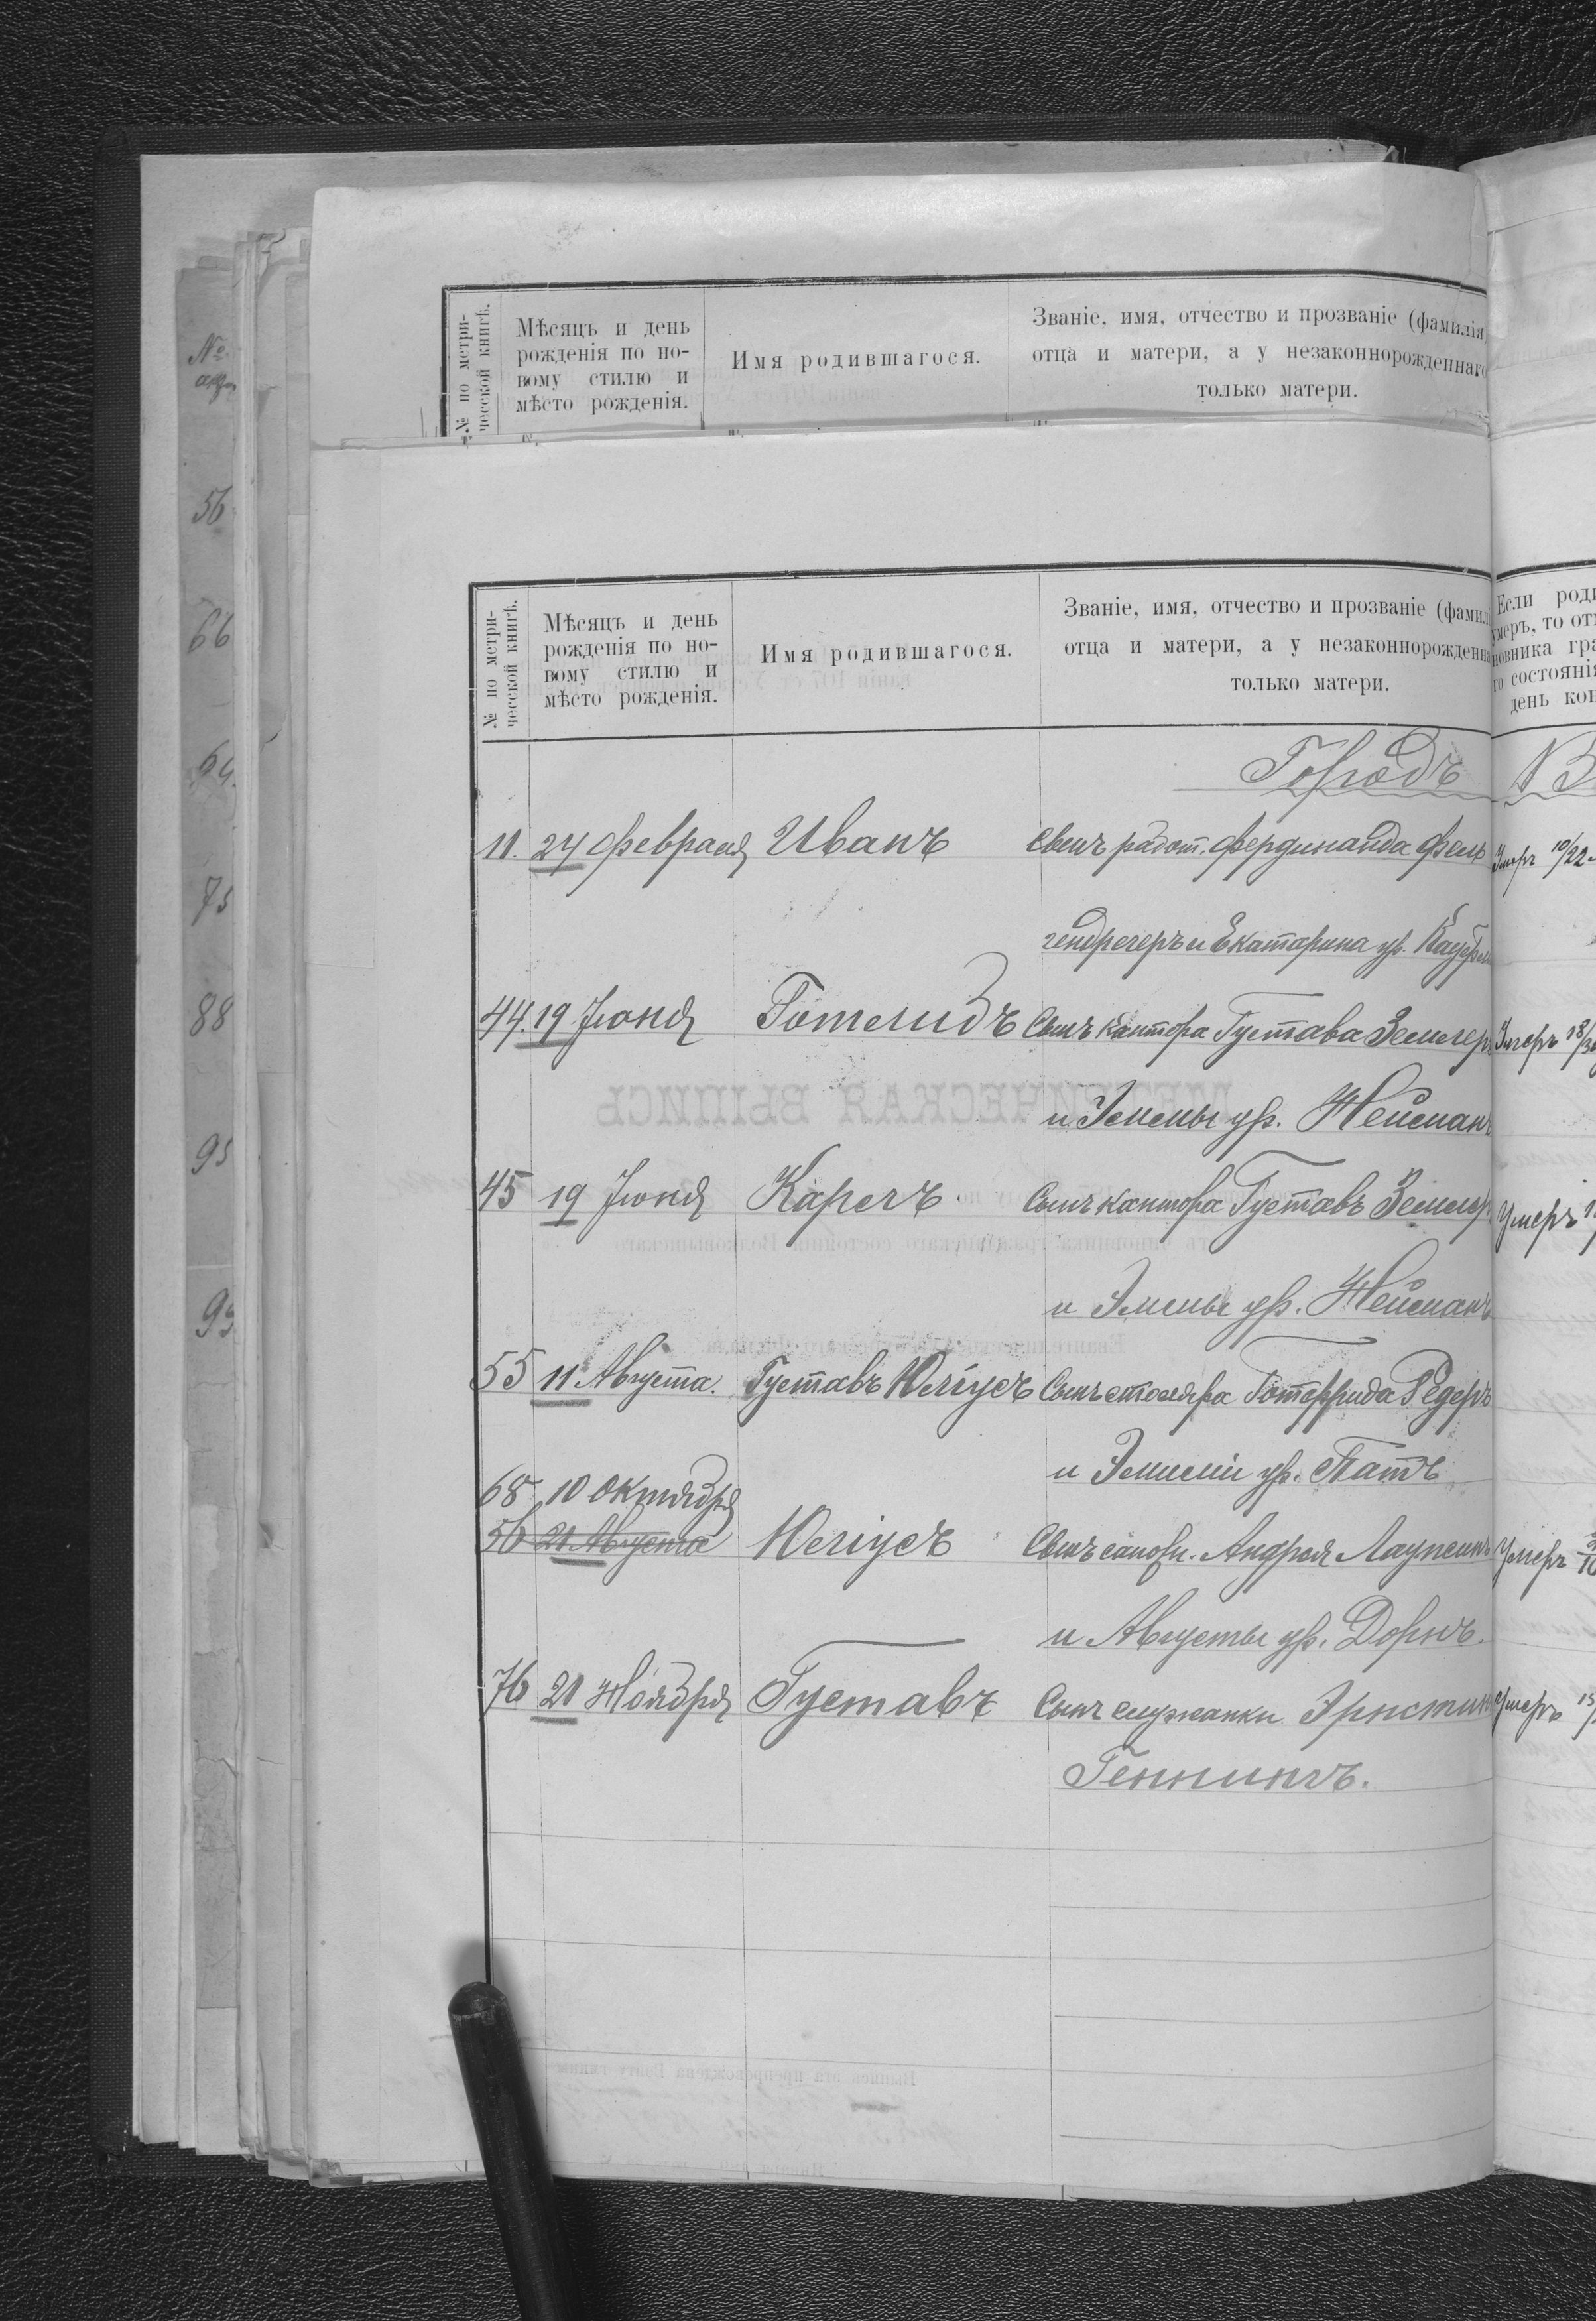 №
56
66
64
75
88
95
99
№ по метри-
ческой книгѣ.
Мѣсяцъ и день
рожденія по но-
вому стилю и
мѣсто рожденія.
Имя родившагося.
Званіе, имя, отчество и прозваніе (фамилія
отца и матери, а у незаконнорожденнаго
только матери.
№ по метри-
ческой книгѣ.
Мѣсяцъ и день
рожденія по но-
вому стилю и
мѣсто рожденія.
Имя родившагося.
Званіе, имя, отчество и прозваніе (фамил
отца и матери, а у незаконнорожденна
только матери.
Если роди
умеръ, то отм
новника гра
го состоянія
день кон
Городъ В
11. 24 Февраля Иванъ Сынъ работ. Фердинанда Фель Умеръ 10/22
гендрегеръ и Екатарина ур.
44. 19 Іюня Готлидъ Сынъ кантора Густава Землер Умеръ 18/30
и Эмемы ур. Нейманъ
45 19 Іюня Карлъ Сынъ кантора Густавъ Землер Умеръ
и Эмемы ур. Нейманъ
55 11 Августа. Густавъ Юліусъ Сынъ столяра Готфрида Редеръ
и Эмиліи ур. Патъ
68 10 Октября
56 21 Августа Юліусъ Сынъ сапожн. Андрея Лаупеннъ Умеръ
и Августы ур. Дорнъ.
76 21 Ноября Густавъ Сынъ служанки Эрнстин Умеръ 15/
Геннингъ.
МЕТРИЧЕСКАЯ ВЫПИСЬ